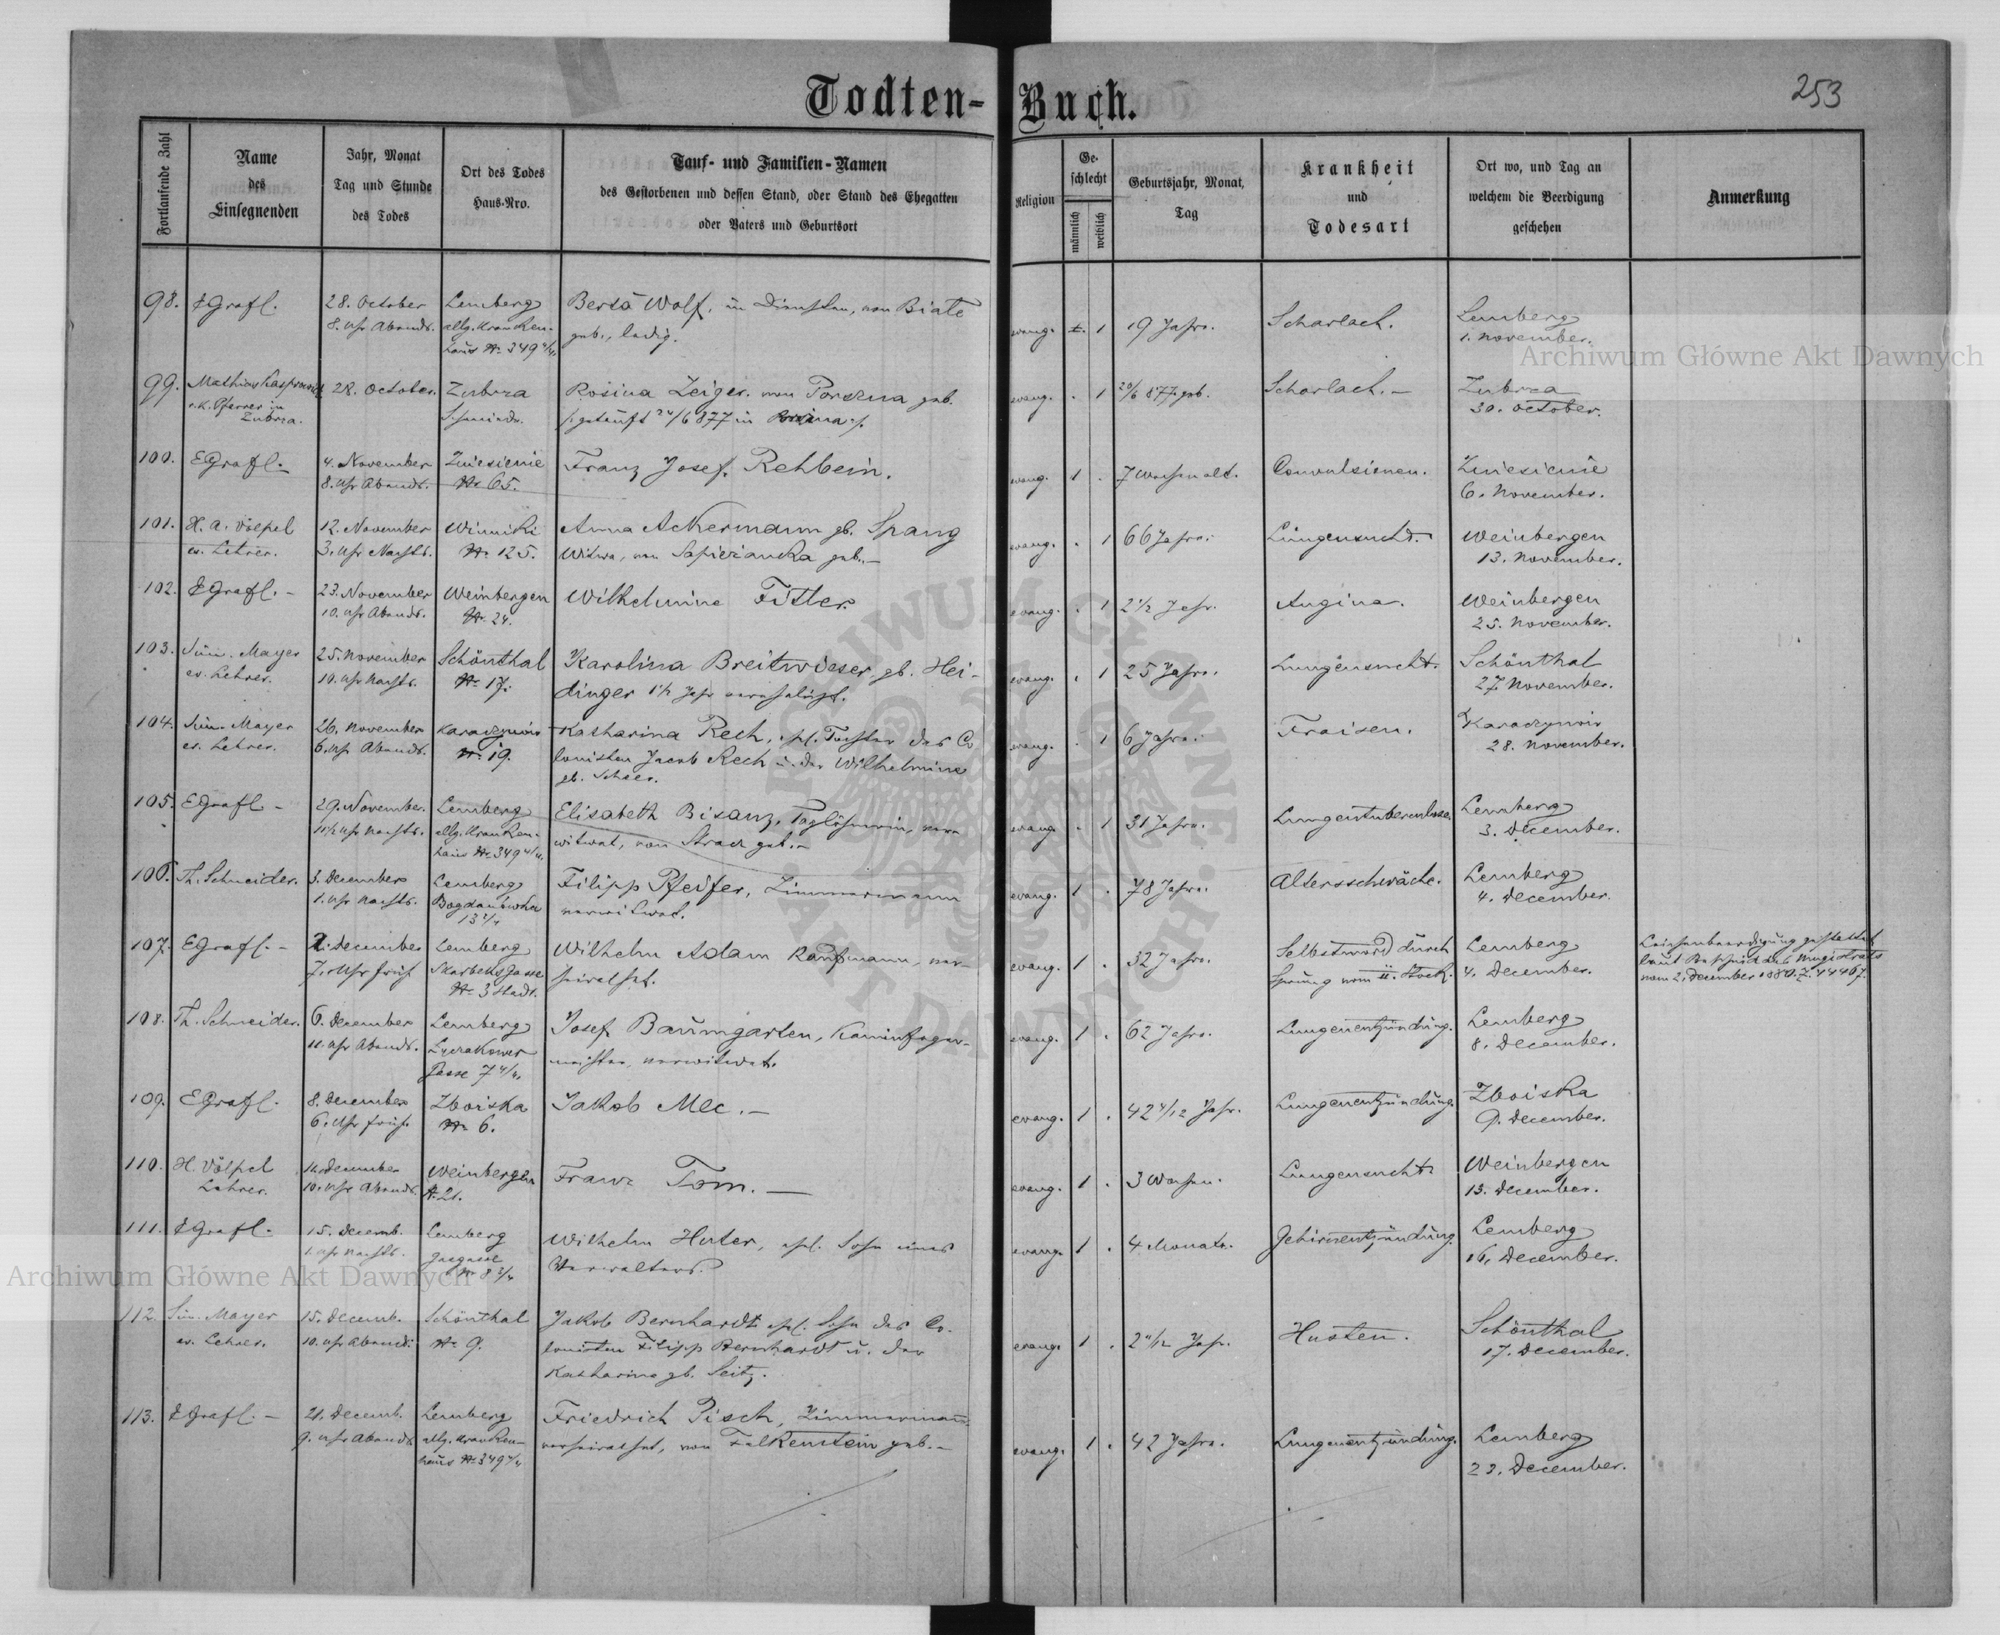 Todten-Buch.
253
Fortlaufende Zahl
Name
des
Einsegnenden
Jahr, Monat
Tag und Stunde
des Todes
Ort des Todes
Haus-Nro.
Tauf- und Familien-Namen
des Gestorbenen und dessen Stand, oder Stand des Ehegatten
oder Vaters und Geburtsort
Religion
Ge-
schlecht
männlich
weiblich
Geburtsjahr, Monat,
Tag
Krankheit
und
Todesart
Ort wo, und Tag an
welchem die Beerdigung
geschehen
Anmerkung
98. E Grafl. 28. October Lemberg Berta Wolf, in Diensten, von Biale evang. 1 19 Jahre. Scharlach. Lemberg
8. Uhr Abends. allg. Kranken- geb., ledig. 1. November.
haus No 349 4/4.
99. 28. October. Zubrza Rosina Zeiger. von geb. evang. . 1 20/6 877 geb. Scharlach. – Zubrza
r. k. Pfarrer in getauft 24/6 877 in 30. October.
Zubrza.
100. E Grafl. 4. November Zniesienie Franz Josef Rehbein. evang. 1 . 7 Wochen alt. Convulsionen. Zniesienie
8. Uhr Abends. No 65. 6. November.
101. H. A. Völpel 12. November Winniki Anna Ackermann gb. Spang evang. . 1 66 Jahre. Lungensucht. Weinbergen
ev. Lehrer. 3. Uhr Nachts. No 125. Witwe, von Sapiezanka geb. – 13. November.
102. E Grafl. – 23. November Weinbergen Wilhelmine evang. . 1 2 1/2 Jahr. Angina. Weinbergen
10. Uhr Abends. No 24. 25. November.
103. Sim. Mayer 25. November Schönthal Karolina Breitwieser, gb. Hei- evang. . 1 25 Jahre. Lungensucht. Schönthal
ev. Lehrer. 10. Uhr Nachts. No 17. dinger 1 1/2 Jahr verehelicht. 27. November.
104. Sim. Mayer 26. November Karaczynow Katharina Rech, ehl. Tochter des Co evang. . 1 6 Jahre. Fraisen. Karaczynow
ev. Lehrer. 6. Uhr Abends. No 19. lonisten Jacob Rech u. der Wilhelmine 28. November.
gb. Scheer.
105. E Grafl – 29. November. Lemberg Elisabeth Bisanz, Taglöhnerin, ver- evang. . 1 31 Jahre. Lungentuberculose. Lemberg
11 1/2 Uhr Nachts. allg. Kranken- witwet, von geb. – 3. December.
haus No 349 4/4.
106. Th. Schneider. 3. December Lemberg Filipp Pfeifer, Zimmermann evang. 1 . 78 Jahre. Altersschwäche. Lemberg
1. Uhr Nachts. Bogdanówka verwitwet. 4. December.
107. E Grafl. – 2. December Lemberg Wilhelm Adam Kaufmann, ver- evang. 1 . 32 Jahre. Selbstmord durch Lemberg Leichenbeerdigung gestattet
7. Uhr früh. Skarbeks Gasse heirathet. Sprung vom II. Stock. 4. December. laut Bescheid des Magistrats
No 3 Stadt. vom 2. December 1880. Z. 44467.
108. Th. Schneider. 6. December Lemberg Josef Baumgarten, Kaminfeger- evang. 1 . 62 Jahre. Lungenentzündung. Lemberg
11. Uhr Abends. Lyczakower meister, verwitwet. 8. December.
Gasse 7 4/4.
109. E Grafl. 8. December Zboiska Jakob Mec. – evang. 1 . 42 4/12 Jahr. Lungenentzündung. Zboiska
6. Uhr früh. No 6. 9. December.
110. H. Völpel 11. December Weinbergen Franz Tom. — evang. 1 . 3 Wochen. Lungensucht. Weinbergen
Lehrer. 10. Uhr Abends. No 21. 13. December.
111. E Grafl. 15. Decemb. Lemberg Wilhelm Huter, ehl. Sohn eines evang. 1 . 4 Monate. Gehirnentzündung. Lemberg
1. Uhr Nachts. Verwalters. 16. December.
112. Sim. Mayer 15. Decemb. Schönthal Jakob Bernhardt ehl. Sohn des Co- evang. 1 . 2 11/12 Jahr. Husten. Schönthal
ev. Lehrer. 10. Uhr Abends. No 9. lonisten Filipp Bernhardt u. der 17. December.
Katharina gb. Seitz.
113. E Grafl. – 21. Decemb. Lemberg Friedrich Pisch, Zimmermann evang. 1 . 42 Jahre. Lungenentzündung. Lemberg
9. Uhr Abends. allg. Kranken- verheirathet, von Falkenstein geb. – 23. December.
haus No 349 4/4
Archiwum Główne Akt Dawnych
Archiwum Główne Akt Dawnych
ARCHIWUM GŁÓWNE AKT DAWNYCH